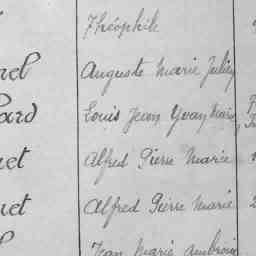 Théophile
nel Auguste Marie Julien
ard Louis Jean Yvan Marie
net Alfred Pierre Marie
net Alfred Pierre Marie 2
Jean Marie Ambroise